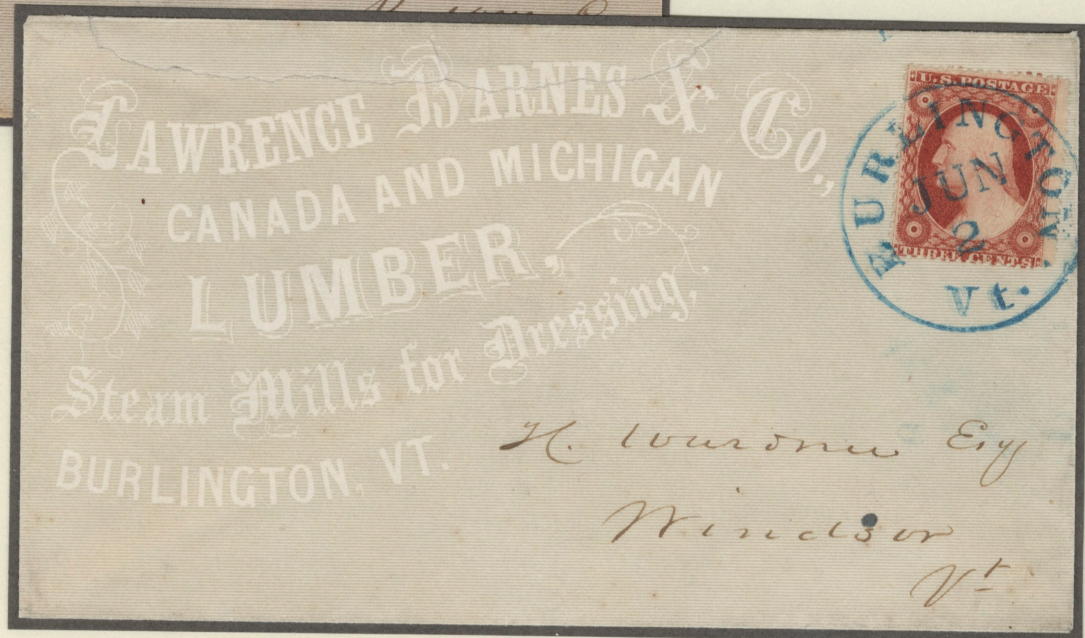 LAWRENCE BARNES & CO.,
CANADA AND MICHIGAN
LUMBER,
Steam Mills for Dressing,
BURLINGTON, VT.
U.S. POSTAGE
THREE CENTS
BURLINGTON.
JUN
2
Vt.
H. Wardner Esq
Windsor
Vt